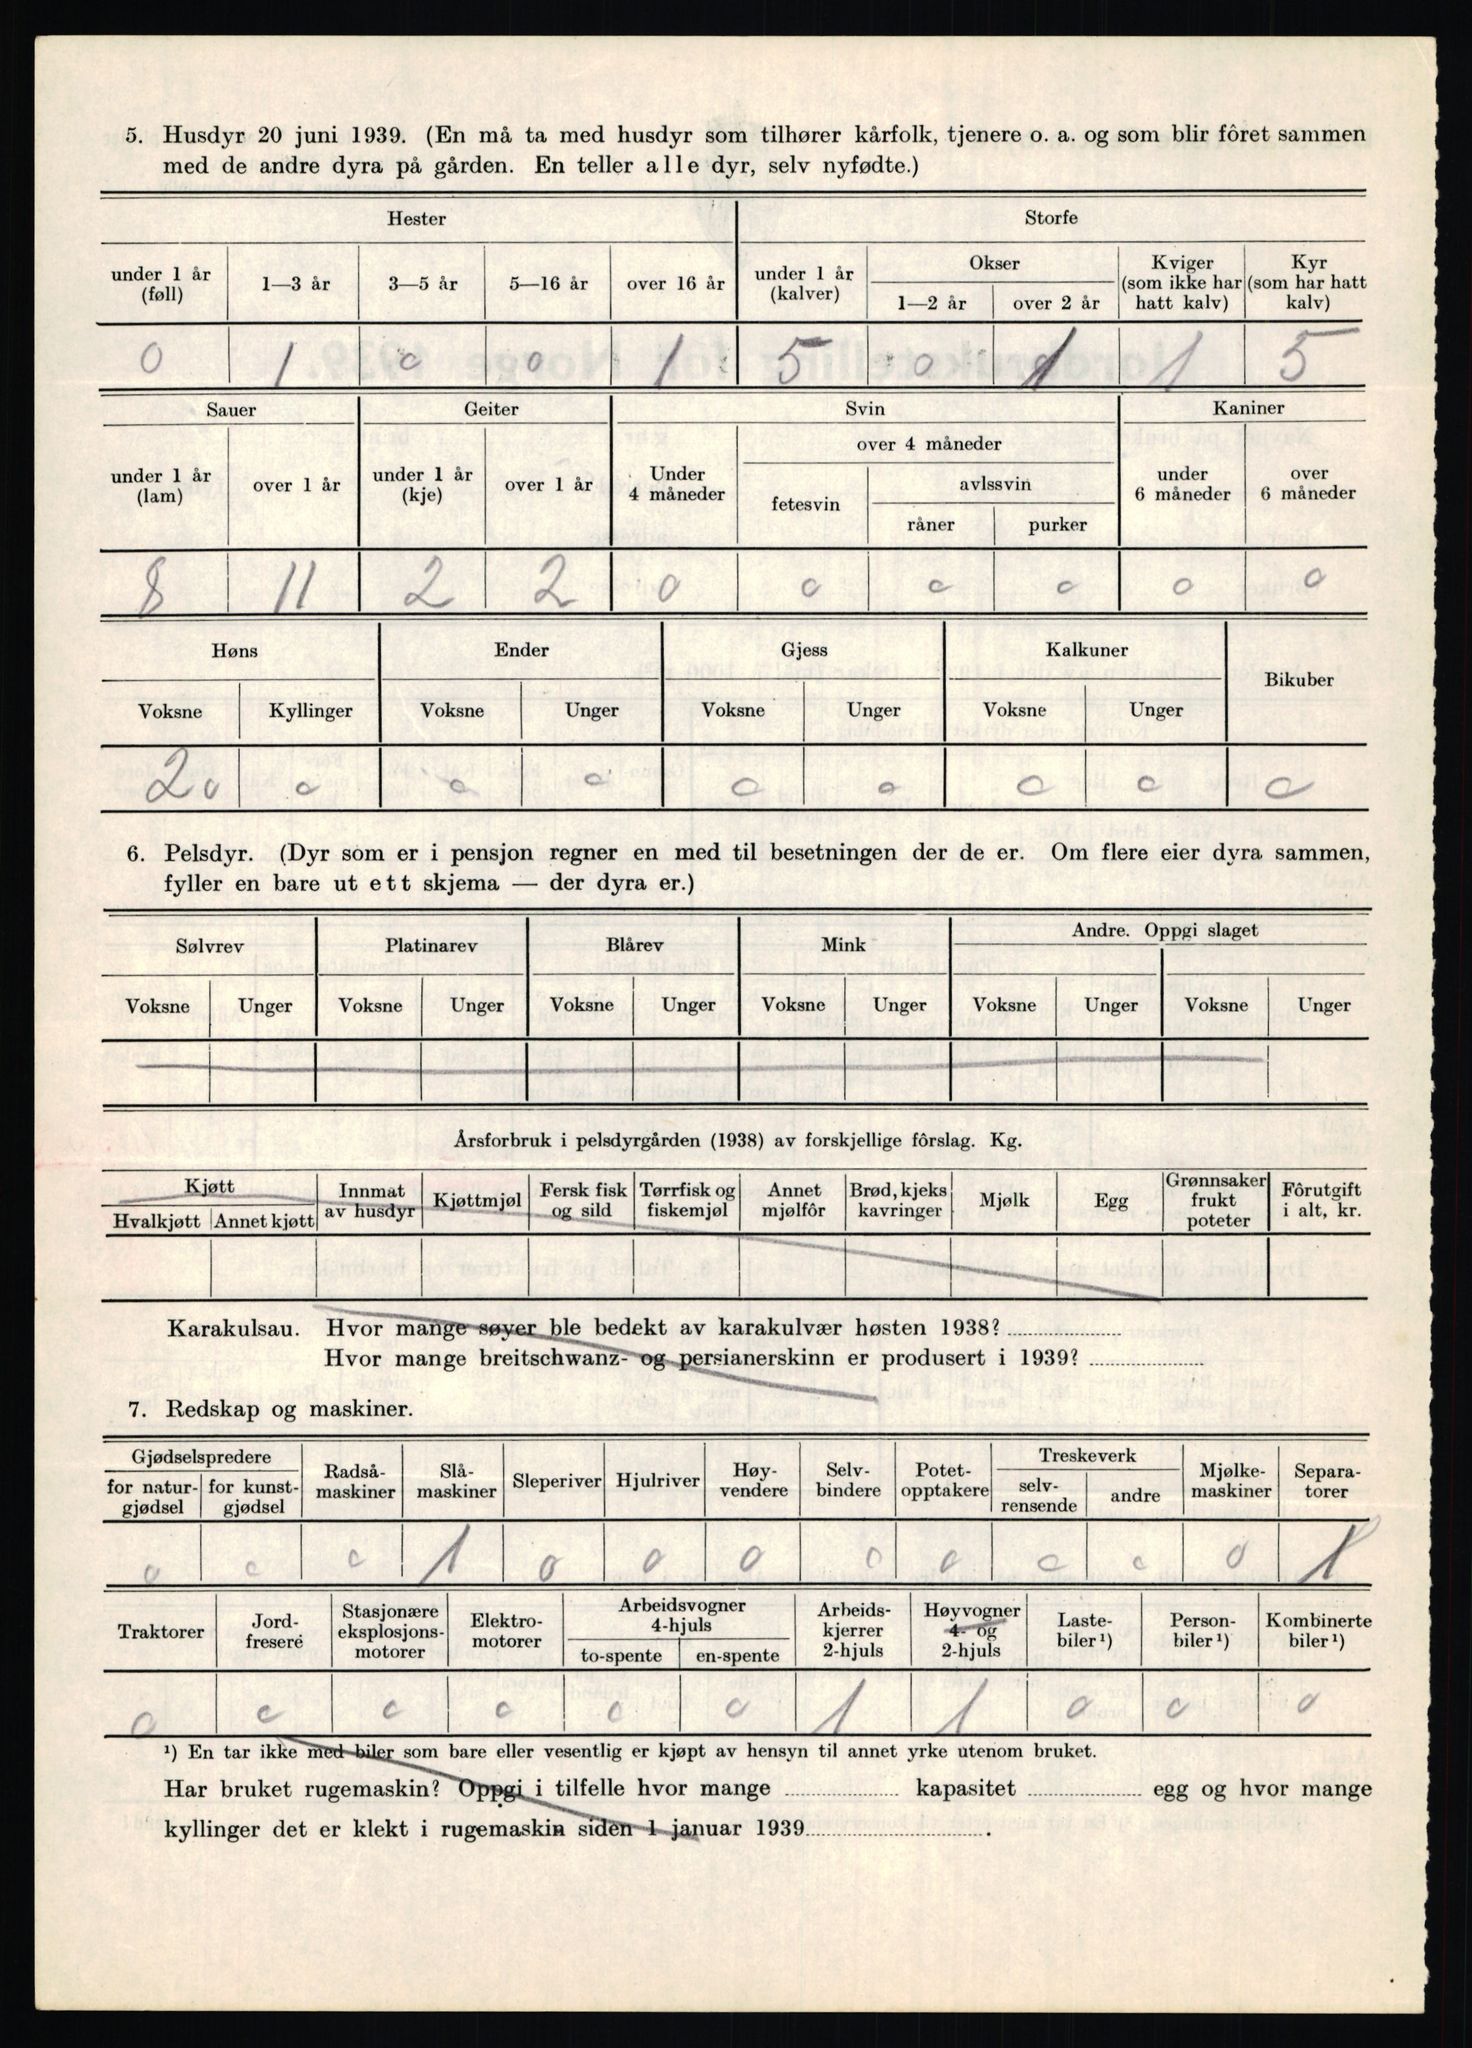 5. Husdyr 20 juni 1939. (En må ta med husdyr som tilhører kårfolk, tjenere o. a. og som blir fôret sammen
med de andre dyra på gården. En teller alle dyr, selv nyfødte.)
Hester Storfe
under 1 år (føll) 1—3 år 3—5 år 5—16 år over 16 år under 1 år (kalver) Okser 1—2 år over 2 år Kviger (som ikke har hatt kalv) Kyr (som har hatt kalv)
0 1 0 0 1 5 0 1 1 5
Sauer Geiter Svin Kaniner
under 1 år (lam) over 1 år under 1 år (kje) over 1 år Under 4 måneder over 4 måneder fetesvin avlssvin råner purker under 6 måneder over 6 måneder
8 11 2 2 0 0 0 0 0 0
Høns Ender Gjess Kalkuner Bikuber
Voksne Kyllinger Voksne Unger Voksne Unger Voksne Unger
20 0 0 0 0 0 0 0 0
6. Pelsdyr. (Dyr som er i pensjon regner en med til besetningen der de er. Om flere eier dyra sammen,
fyller en bare ut ett skjema — der dyra er.)
Sølvrev Platinarev Blårev Mink Andre. Oppgi slaget
Voksne Unger Voksne Unger Voksne Unger Voksne Unger Voksne Unger Voksne Unger
Årsforbruk i pelsdyrgården (1938) av forskjellige fôrslag. Kg.
Kjøtt Hvalkjøtt Annet kjøtt Innmat av husdyr Kjøttmjøl Fersk fisk og sild Tørrfisk og fiskemjøl Annet mjølfôr Brød, kjeks kavringer Mjølk Egg Grønnsaker frukt poteter Fôrutgift i alt, kr.
Karakulsau. Hvor mange søyer ble bedekt av karakulvær høsten 1938?
Hvor mange breitschwanz- og persianerskinn er produsert i 1939?
7. Redskap og maskiner.
Gjødselspredere for natur-gjødsel for kunst-gjødsel Radså-maskiner Slå-maskiner Sleperiver Hjulriver Høy-vendere Selv-bindere Potet-opptakere Treskeverk selv-rensende andre Mjølke-maskiner Separa-torer
0 0 0 1 0 0 0 0 0 0 0 0 1
Traktorer Jord-fresere Stasjonære eksplosjons-motorer Elektro-motorer Arbeidsvogner 4-hjuls to-spente en-spente Arbeids-kjerrer 2-hjuls Høyvogner 4- og 2-hjuls Laste-biler¹) Person-biler¹) Kombinerte biler¹)
0 0 0 0 0 0 1 1 0 0 0
¹) En tar ikke med biler som bare eller vesentlig er kjøpt av hensyn til annet yrke utenom bruket.
Har bruket rugemaskin? Oppgi i tilfelle hvor mange kapasitet egg og hvor mange
kyllinger det er klekt i rugemaskin siden 1 januar 1939 .